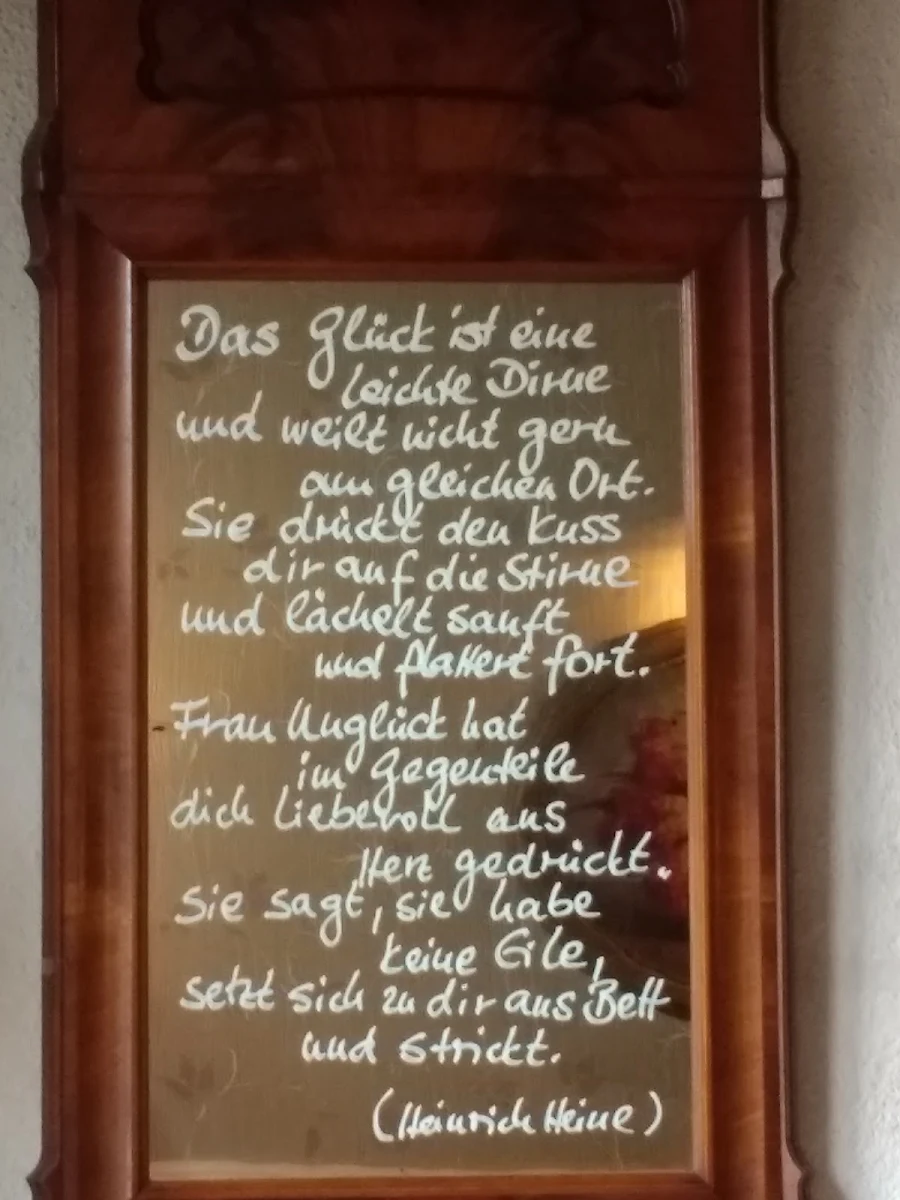 Das Glück ist eine
leichte Dirne
und weilt nicht gern
am gleichen Ort.
Sie drückt den Kuss
dir auf die Stirne
und lächelt sanft
und flattert fort.
Frau Unglück hat
im Gegenteile
dich liebevoll ans
Herz gedrückt.
Sie sagt, sie habe
keine Eile,
setzt sich zu dir ans Bett
und strickt.
(Heinrich Heine)